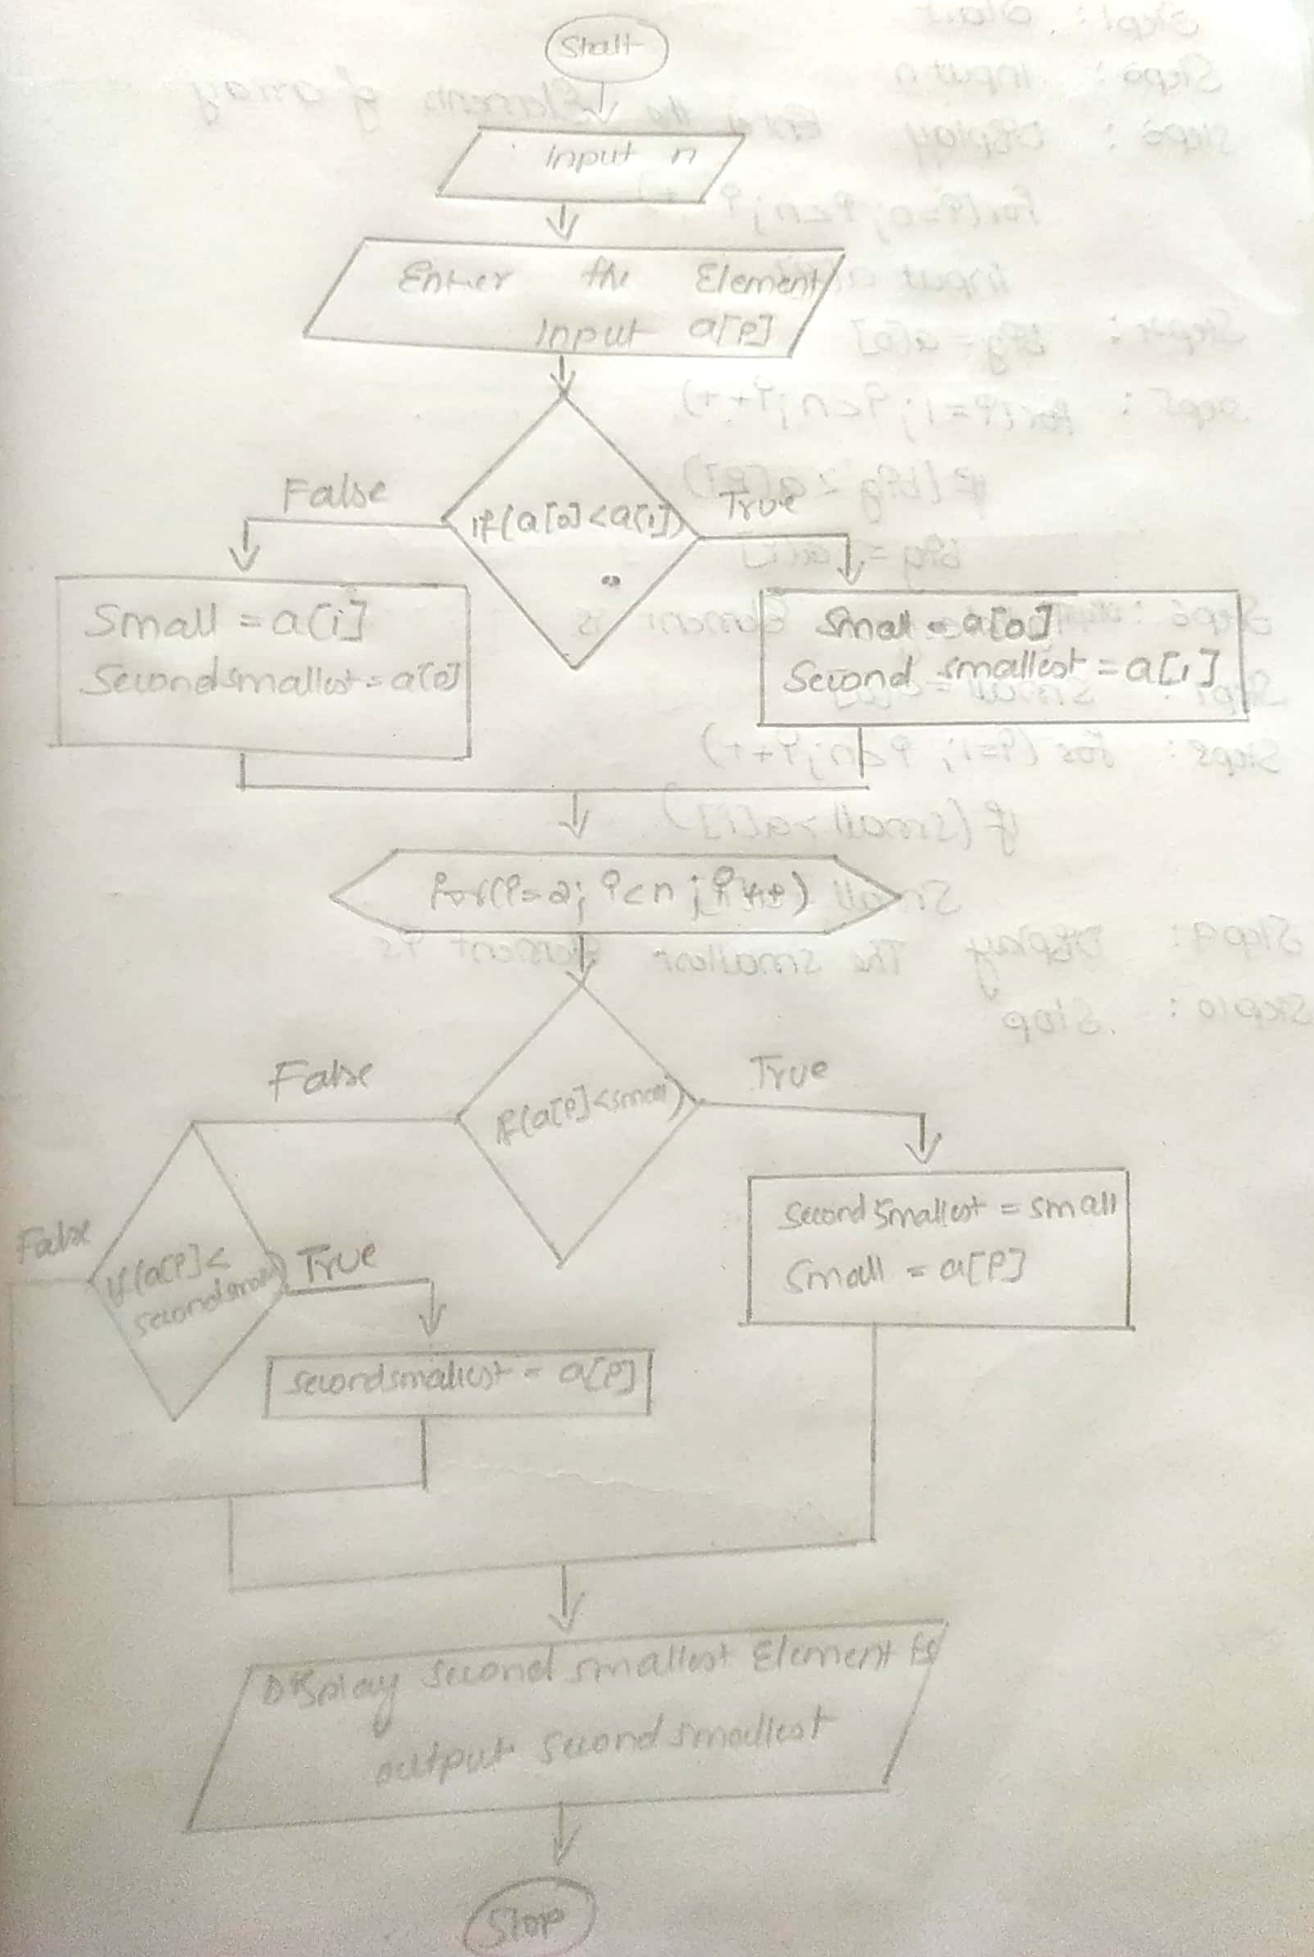 Start
input n
Enter the Element
Input a[i]
False
if(a[0]<a[1])
True
Small = a[1]
Secondsmallest = a[0]
Small = a[0]
Second smallest = a[1]
for(i=2; i<n; i++)
False
if(a[i]<small)
True
Second Smallest = small
Small = a[i]
False
if(a[i]<
secondsmall)
True
secondsmallest = a[i]
Display second smallest Element is
output second smallest
Stop